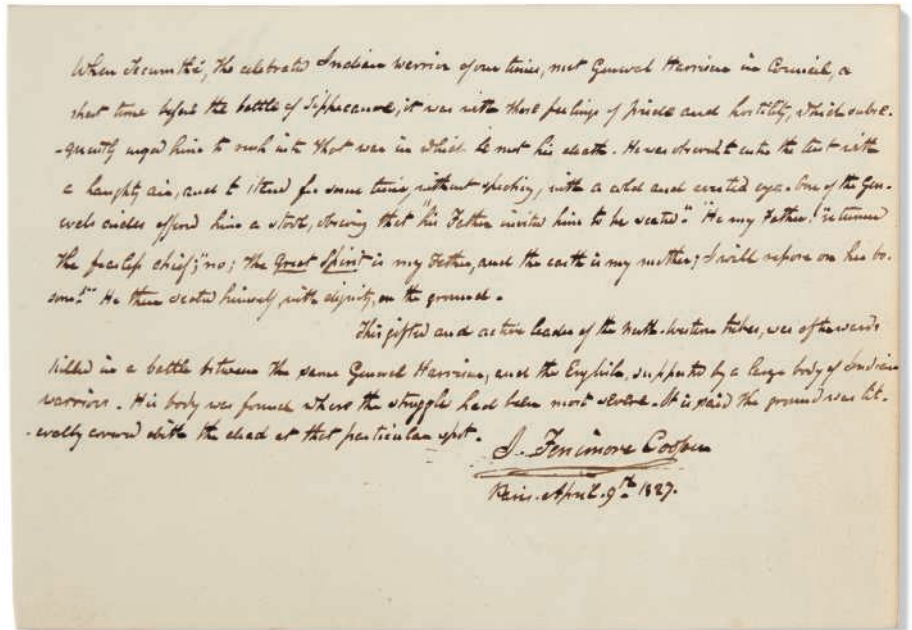 When Tecumthé, the celebrated Indian warrior of our times, met General Harrison in Council, a
short time before the battle of Tippecanoe, it was with those feelings of pride and hostility, which subse-
-quently urged him to rush into that war in which he met his death. He was observed to enter the tent with
a haughty air, and to stand for some time, without speaking, with a cold and averted eye. One of the Gen-
erals aides offered him a stool, observing that "his Father invited him to be seated." "He my Father!" returned
the fearless chief; "no; the Great Spirit is my Father, and the earth is my mother; I will repose on her bo-
som." He then seated himself, with dignity, on the ground.
This gifted and active leader of the north-western tribes, was afterwards
killed in a battle between the same General Harrison, and the English, supported by a large body of Indian
warriors. His body was found where the struggle had been most severe. It is said the ground was lit-
-erally covered with the dead at that particular spot.
J. Fenimore Cooper
Paris. April. 9th 1827.